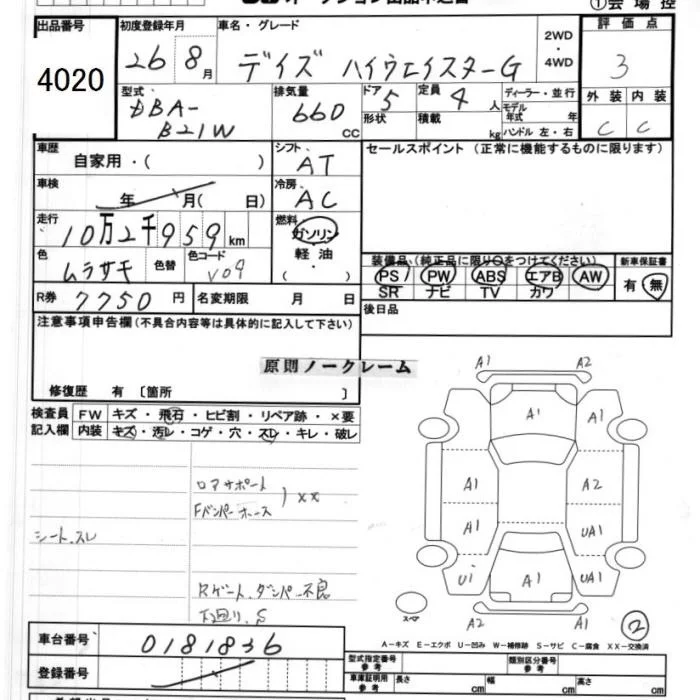 ①会場控
出品番号
4020
初度登録年月
26 8月
車名・グレード
デイズ ハイウェイスターG
2WD
・
4WD
評価点
3
型式
DBA-
B21W
排気量
660
CC
ドア
5
形状
定員
4人
積載
kg
ディーラー・並行
モデル
年式 年
ハンドル 左・右
外装
C
内装
C
車歴
自家用・( )
シフト
AT
セールスポイント (正常に機能するものに限ります)
車検
年 月( 日)
冷房
AC
走行
10万2千959km
燃料
ガソリン
軽油
( ・ )
色
ムラサキ
色替
色コード
V09
R券
7750円
名変期限 月 日
装備品 (純正品に限り○をつけてください)
PS PW ABS エアB AW
SR ナビ TV カワ
新車保証書
有・無
後日品
注意事項申告欄(不具合内容等は具体的に記入して下さい)
原則ノークレーム
修復歴 有 〔箇所 〕
検査員
記入欄
FW キズ・飛石・ヒビ割・リペア跡・×要
内装 キズ・汚レ・コゲ・穴・スレ・キレ・破レ
シート.スレ
ロアサポート
Fバンパーホース
××
Rゲート.ダンパー不良
下廻り.S
A1 A2
A1 A1
A1 A2
A1 UA1
U1 A1 UA1
A2 A1
スペア
2
A-キズ E-エクボ U-凹み W-補修跡 S-サビ C-腐食 XX-交換済
車台番号
0181836
登録番号
型式指定番号
参考
類別区分番号
参考
車庫証明用
参考
長さ cm 幅 cm 高さ cm